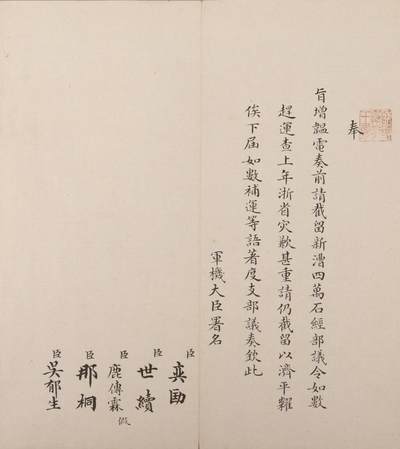 奉
旨增韞電奏前請截留新漕四萬石經部議令如數
趕運查上年浙省灾歉甚重請仍截留以濟平糶
俟下屆如數補運等語著度支部議奏欽此
軍機大臣署名
臣奕劻
臣世續
臣鹿傳霖假
臣那桐
臣吳郁生